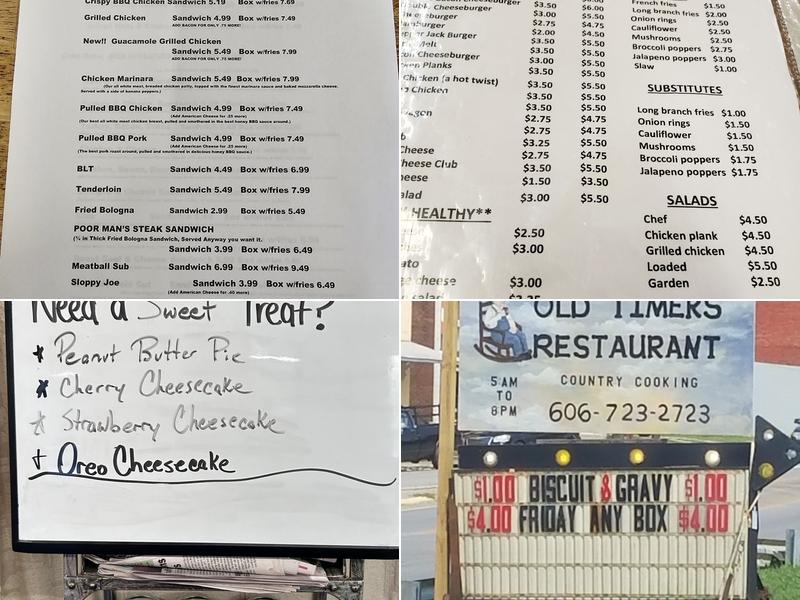 Crispy BBQ Chicken Sandwich 5.19 Box w/fries 7.69
Grilled Chicken Sandwich 4.99 Box w/fries 7.49
ADD BACON FOR ONLY .75 MORE!
New!! Guacamole Grilled Chicken
Sandwich 5.49 Box w/fries 7.99
ADD BACON FOR ONLY .75 MORE!
Chicken Marinara Sandwich 5.49 Box w/fries 7.99
(Our all white meat, breaded chicken patty, topped with the finest marinara sauce and baked mozzarella cheese.
Served with a side of banana peppers.)
Pulled BBQ Chicken Sandwich 4.99 Box w/fries 7.49
(Add American Cheese for .25 more)
(Our best all white meat chicken breast, pulled and smothered in the best honey BBQ sauce around.)
Pulled BBQ Pork Sandwich 4.99 Box w/fries 7.49
(Add American Cheese for .25 more)
(The best pork roast around, pulled and smothered in delicious honey BBQ sauce.)
BLT Sandwich 4.49 Box w/fries 6.99
Tenderloin Sandwich 5.49 Box w/fries 7.99
Fried Bologna Sandwich 2.99 Box w/fries 5.49
POOR MAN'S STEAK SANDWICH
(¾ in Thick Fried Bologna Sandwich, Served Anyway you want it.
Sandwich 3.99 Box w/fries 6.49
Meatball Sub Sandwich 6.99 Box w/fries 9.49
Sloppy Joe Sandwich 3.99 Box w/fries 6.49
(Add American Cheese for .40 more)
Cheeseburger $3.50 $6.00
$3.00 $5.50
$2.75 $4.75
Jack Burger $2.00 $4.00
Melt $3.50 $5.50
Cheeseburger $3.00 $5.50
Planks $3.50 $5.50
Chicken (a hot twist) $3.50 $5.50
Chicken $3.50 $5.50
$3.50 $5.50
$2.75 $4.75
$2.75 $4.75
$3.25 $5.50
heese $2.75 $4.75
heese Club $3.50 $5.50
eese $1.50 $3.50
alad $3.00 $5.50
HEALTHY**
$2.50
$3.00
ato
ge cheese $3.00
French fries $1.50
Long branch fries $2.00
Onion rings $2.50
Cauliflower $2.50
Mushrooms $2.50
Broccoli poppers $2.75
Jalapeno poppers $3.00
Slaw $1.00
SUBSTITUTES
Long branch fries $1.00
Onion rings $1.50
Cauliflower $1.50
Mushrooms $1.50
Broccoli poppers $1.75
Jalapeno poppers $1.75
SALADS
Chef $4.50
Chicken plank $4.50
Grilled chicken $4.50
Loaded $5.50
Garden $2.50
Need a Sweet Treat?
* Peanut Butter Pie
* Cherry Cheesecake
* Strawberry Cheesecake
+ Oreo Cheesecake
OLD TIMERS
RESTAURANT
5AM TO 8PM
COUNTRY COOKING
606-723-2723
$1.00 BISCUIT & GRAVY $1.00
$4.00 FRIDAY ANY BOX $4.00